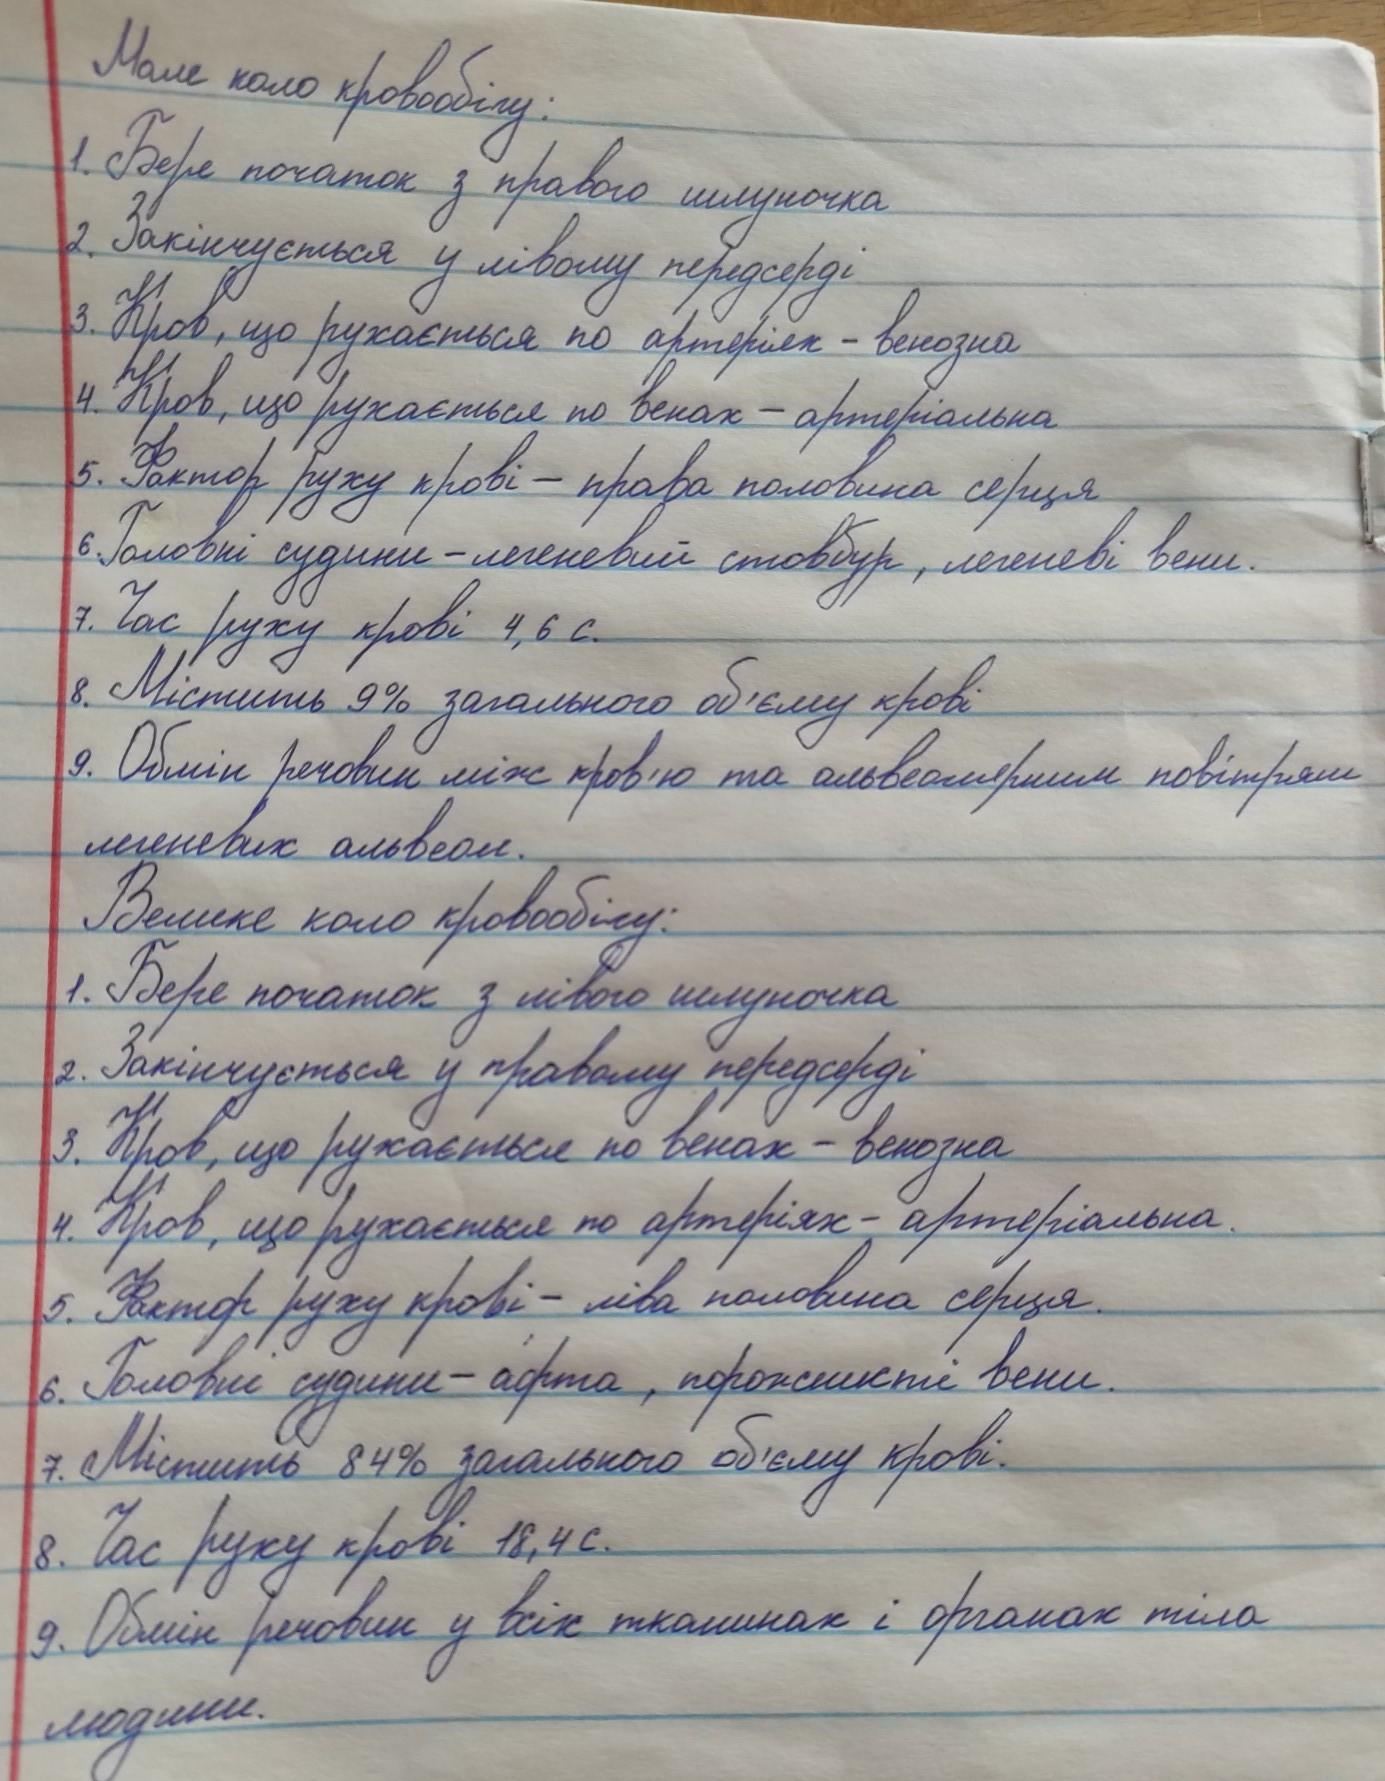 Мале коло кровообігу:
1. Бере початок з правого шлуночка
2. Закінчується у лівому передсерді
3. Кров, що рухається по артеріях - венозна
4. Кров, що рухається по венах - артеріальна
5. Фактор руху крові - права половина серця
6. Головні судини - легеневий стовбур, легеневі вени.
7. Час руху крові 4,6 с.
8. Містить 9% загального об'єму крові
9. Обмін речовин між кров'ю та альвеолярним повітрям
легеневих альвеол.
Велике коло кровообігу:
1. Бере початок з лівого шлуночка
2. Закінчується у правому передсерді
3. Кров, що рухається по венах - венозна
4. Кров, що рухається по артеріях - артеріальна.
5. Фактор руху крові - ліва половина серця.
6. Головні судини - аорта, порожнисті вени.
7. Містить 84% загального об'єму крові.
8. Час руху крові 18,4 с.
9. Обмін речовин у всіх тканинах і органах тіла
людини.